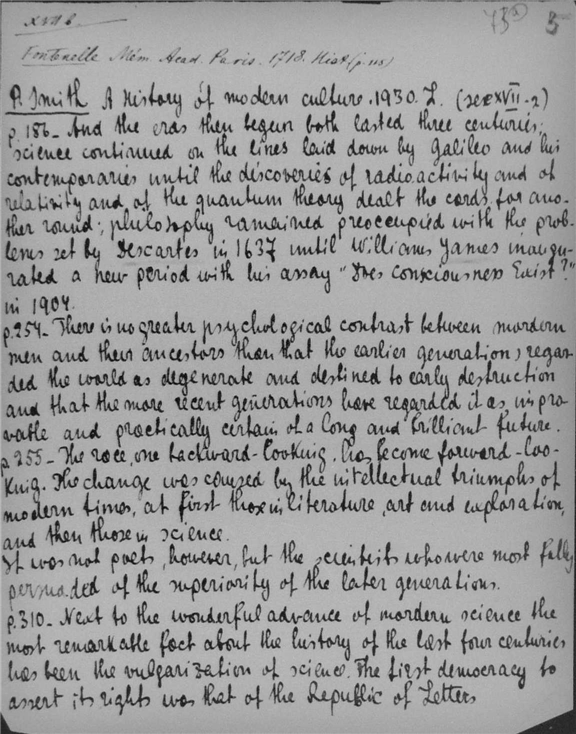 XVII b
73a 3
Fontenelle Mém. Acad. Paris. 1718. Hist (p. 118)
P. Smith A History of modern culture. 1930. L. (sec XVII-2)
p. 186 - And the eras then begun both lasted three centuries;
science continued on the lines laid down by Galileo and his
contemporaries until the discoveries of radioactivity and of
relativity and of the quantum theory dealt the cards for ano-
ther round; philosophy ramained preoccupied with the prob-
lems set by Descartes in 1637 until Williams James inaugu-
rated a new period with his assay "Does consciousness Exist?"
in 1904.
p. 254 - There is no greater psychological contrast between mordern
men and their ancestors than that the earlier generations regar-
ded the world as degenerate and destined to early destruction
and that the more recent generations have regarded it as impro-
vable and practically certain of a long and brilliant future.
p. 255 - The race, one backward-looking, has become forward-loo-
king. The change was caused by the intellectual triumphs of
modern times, at first those in literature, art and exploration,
and then those in science.
It was not poets, however, but the scientists who were most fully
persuaded of the superiority of the later generations.
p. 310 - Next to the wonderful advance of mordern science the
most remarkable fact about the history of the last four centuries
has been the vulgarization of science. The first democracy to
assert its rights was that of the Republic of Letters